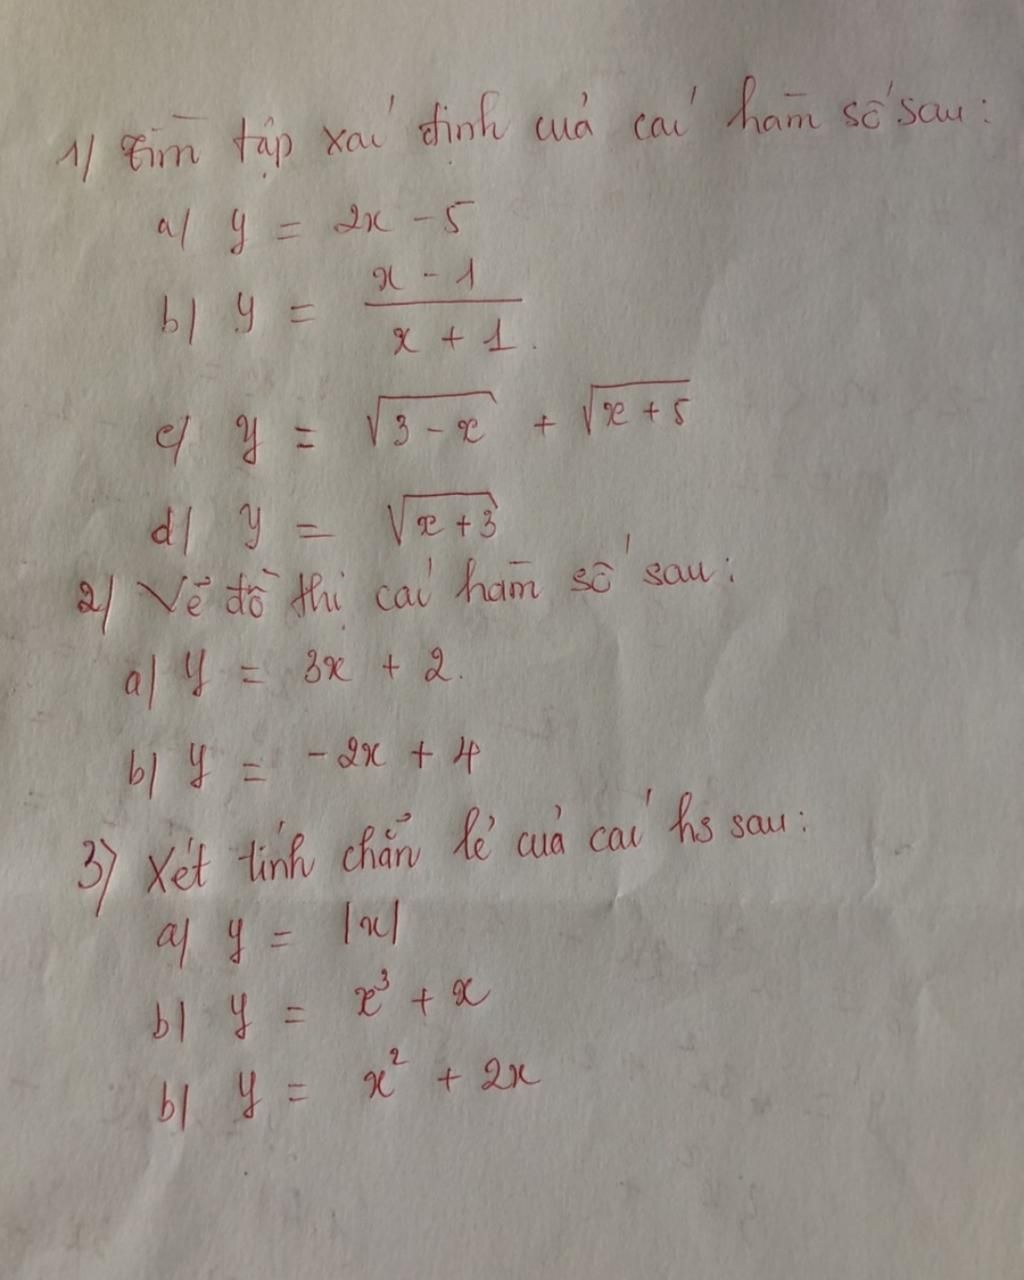 1/ Tìm tập xác định của các hàm số sau:
a/ y = 2x - 5
b/ y = \frac{x - 1}{x + 1}.
c/ y = \sqrt{3 - x} + \sqrt{x + 5}
d/ y = \sqrt{x + 3}
2/ Vẽ đồ thị các hàm số sau:
a/ y = 3x + 2.
b/ y = -2x + 4
3) Xét tính chẵn lẻ của các hs sau:
a/ y = |x|
b/ y = x³ + x
b/ y = x² + 2x